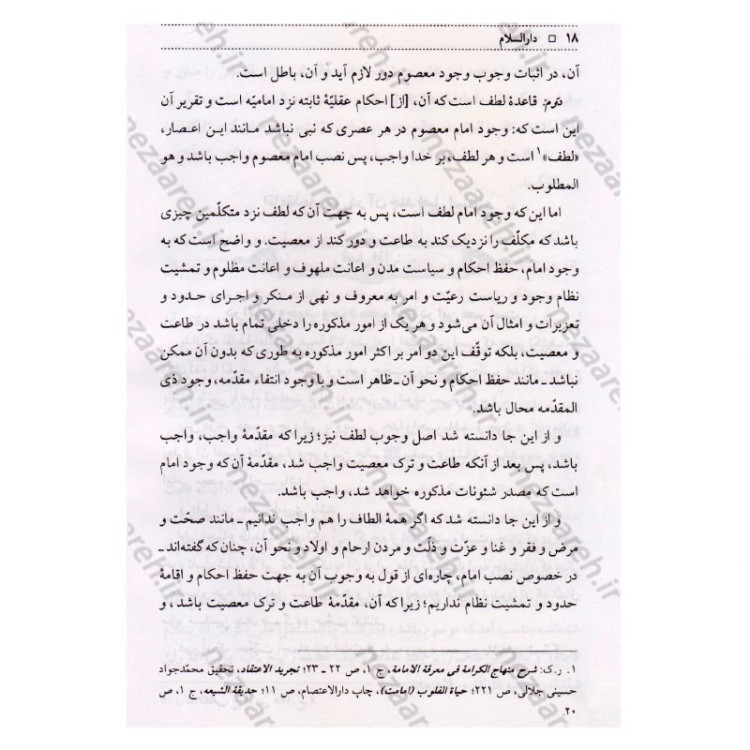 ۱۸ □ دارالسلام
آن، در اثبات وجوب وجود معصوم دور لازم آید و آن، باطل است.
دوّم: قاعدهٔ لطف است که آن، [از] احکام عقلیّهٔ ثابته نزد امامیّه است و تقریر آن
این است که: وجود امام معصوم در هر عصری که نبی نباشد مانند این اعصار،
«لطف»۱ است و هر لطف، بر خدا واجب، پس نصب امام معصوم واجب باشد و هو
المطلوب.
اما این که وجود امام لطف است، پس به جهت آن که لطف نزد متکلّمین چیزی
باشد که مکلّف را نزدیک کند به طاعت و دور کند از معصیت. و واضح است که به
وجود امام، حفظ احکام و سیاست مدن و اعانت ملهوف و اعانت مظلوم و تمشیت
نظام وجود و ریاست رعیّت و امر به معروف و نهی از منکر و اجرای حدود و
تعزیرات و امثال آن می‌شود و هر یک از امور مذکوره را دخلی تمام باشد در طاعت
و معصیت، بلکه توقّف این دو امر بر اکثر امور مذکوره به طوری که بدون آن ممکن
نباشد ـ مانند حفظ احکام و نحو آن ـ ظاهر است و با وجود انتفاء مقدّمه، وجود ذی
المقدّمه محال باشد.
و از این جا دانسته شد اصل وجوب لطف نیز؛ زیرا که مقدّمهٔ واجب، واجب
باشد، پس بعد از آنکه طاعت و ترک معصیت واجب شد، مقدّمهٔ آن که وجود امام
است که مصدر شئونات مذکوره خواهد شد، واجب باشد.
و از این جا دانسته شد که اگر همهٔ الطاف را هم واجب ندانیم ـ مانند صحّت و
مرض و فقر و غنا و عزّت و ذلّت و مردن ارحام و اولاد و نحو آن، چنان که گفته‌اند ـ
در خصوص نصب امام، چاره‌ای از قول به وجوب آن به جهت حفظ احکام و اقامهٔ
حدود و تمشیت نظام نداریم؛ زیرا که آن، مقدّمهٔ طاعت و ترک معصیت باشد، و
۱. ر.ک: شرح منهاج الکرامة فی معرفة الامامة، ج ۱، ص ۲۲ ـ ۲۳؛ تجرید الاعتقاد، تحقیق محمّدجواد
حسینی جلالی، ص ۲۲۱؛ حیاة القلوب (امامت)، چاپ دارالاعتصام، ص ۱۱؛ حدیقة الشیعه، ج ۱، ص
۲۰.
nezaareh.ir